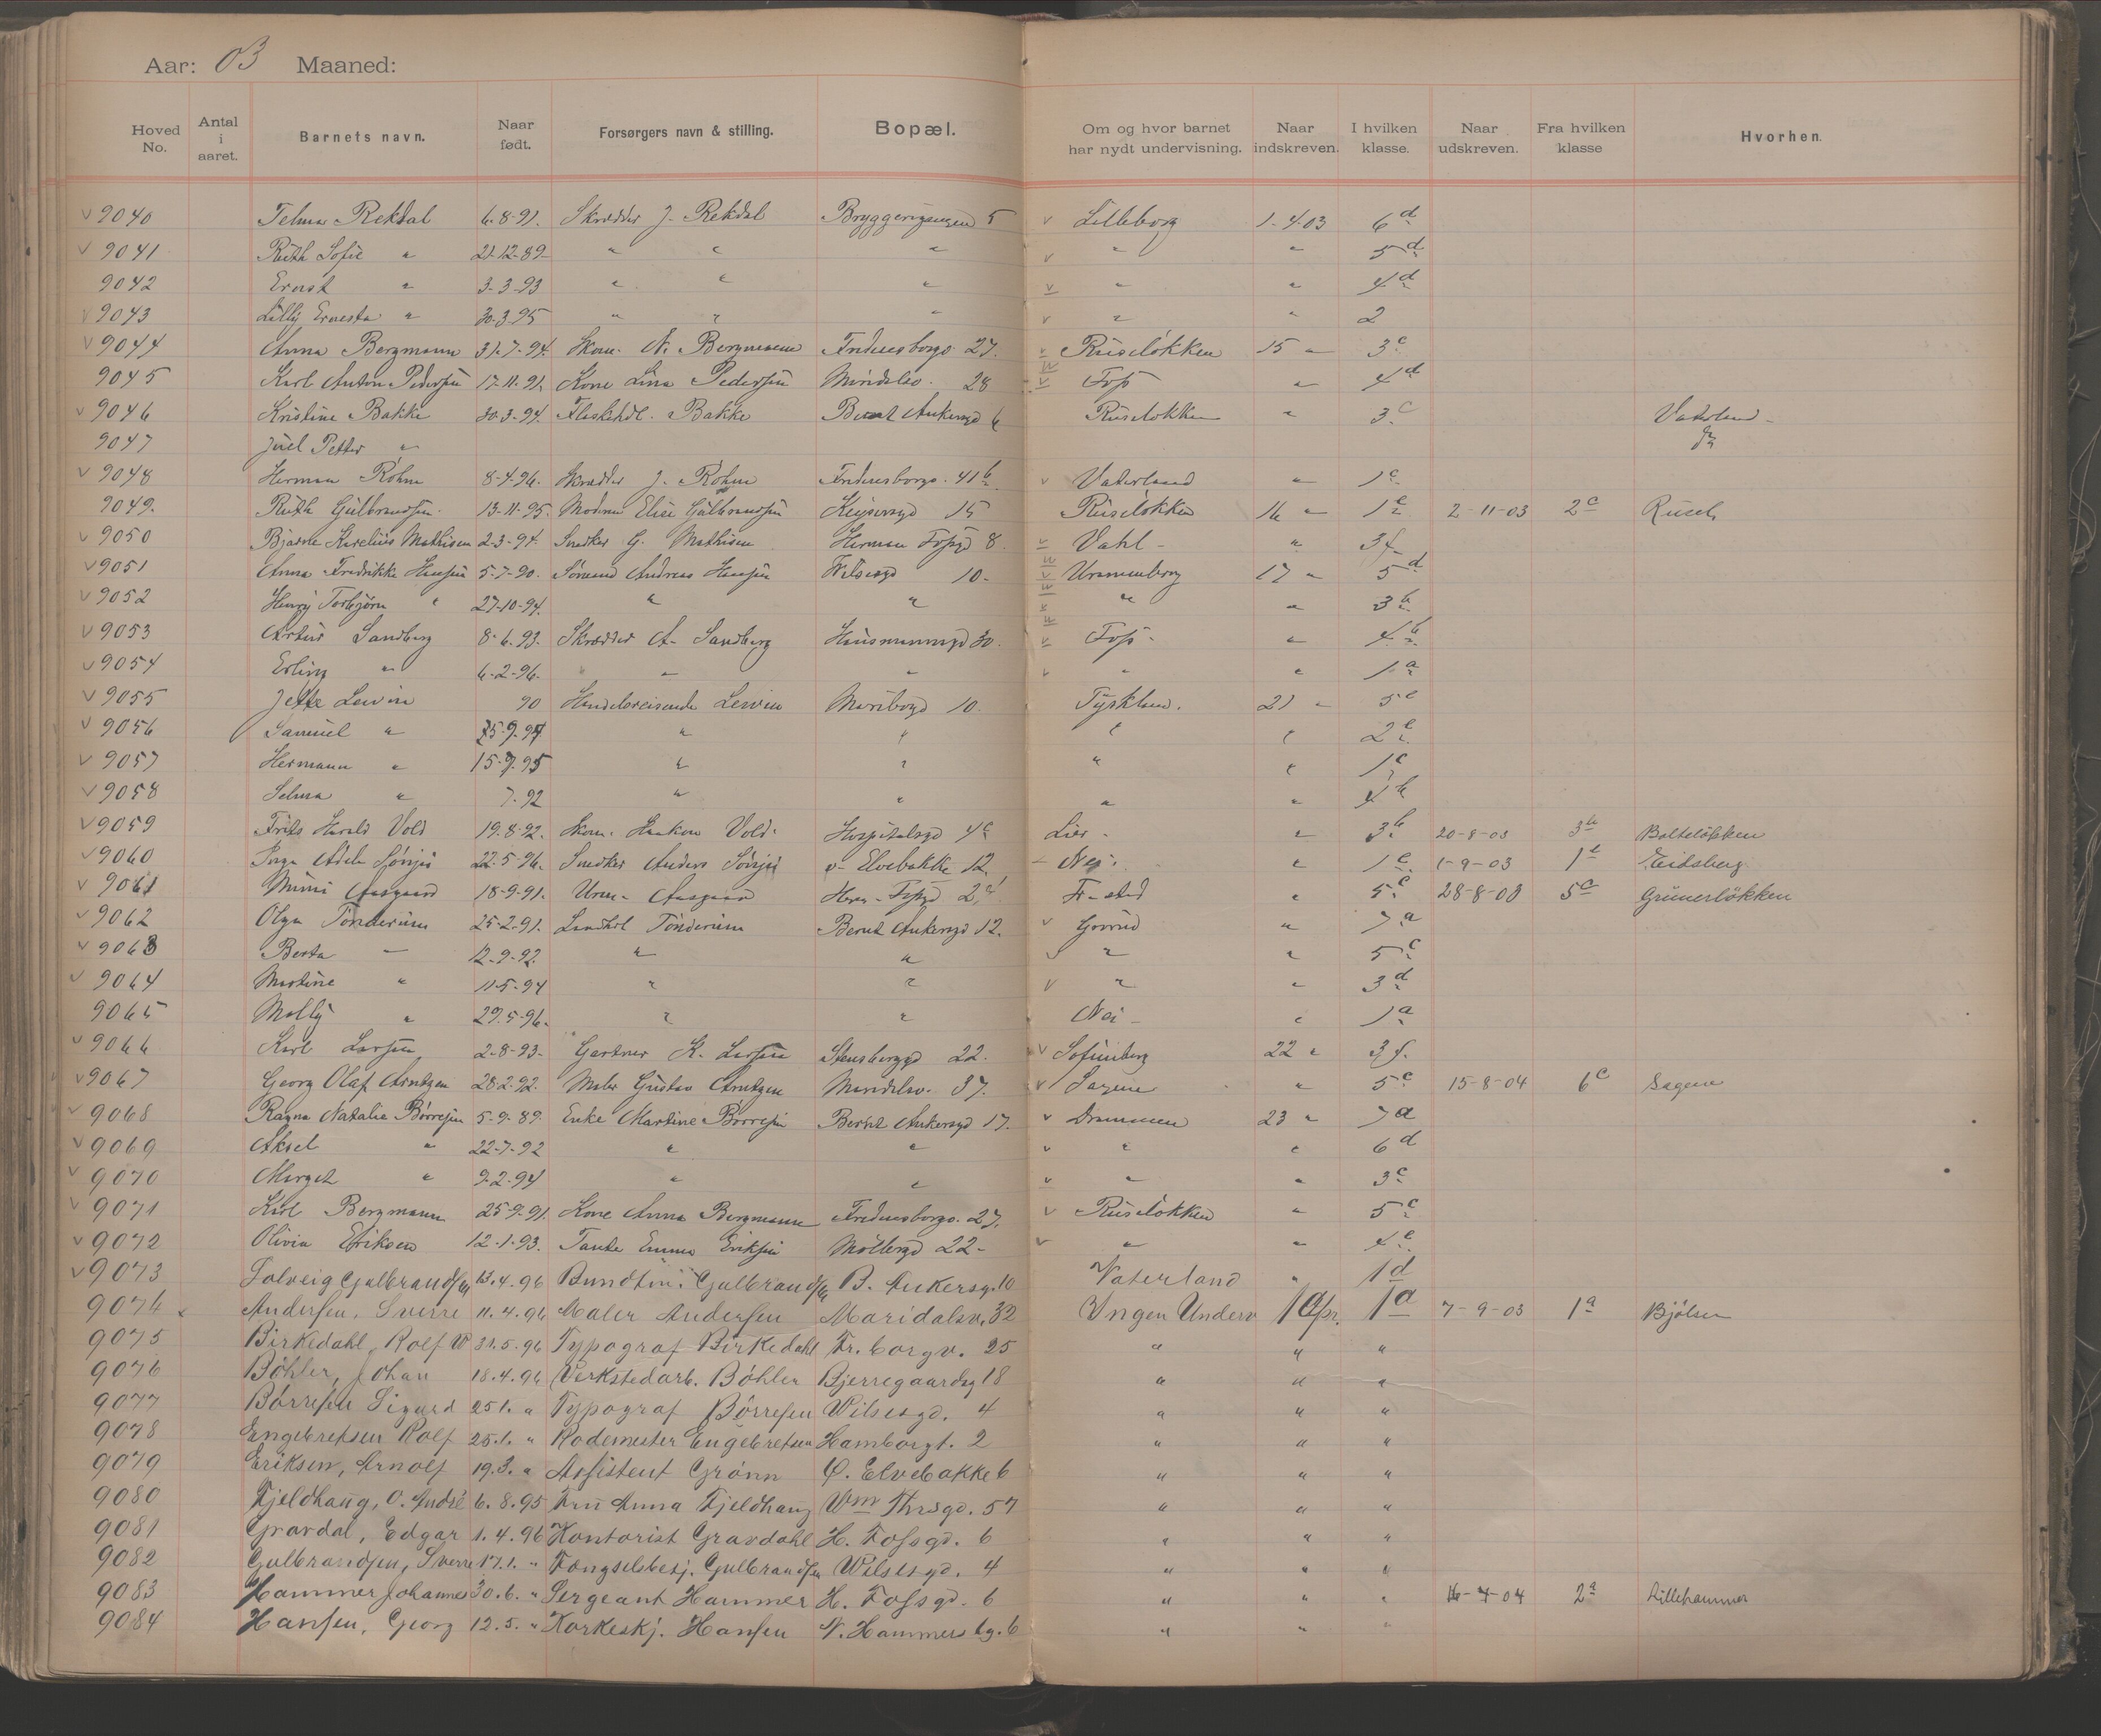 Aar: 03 Maaned:
Hoved No. Antal i aaret. Barnets navn. Naar født. Forsørgers navn & stilling. Bopæl. Om og hvor barnet har nydt undervisning. Naar indskreven. I hvilken klasse. Naar udskreven. Fra hvilken klasse Hvorhen.
v 9040 Telma Rekdal 6.8.91. Skrædder J. Rekdal Bryggerigangen 5 v Lilleborg 1-4.03 6d
v 9041 Ruth Sofie " 21-12-89 " " " v " " 5d
9042 Ernst " 3-3-93 " " " v " " 4d
v 9043 Lilly Ernesta " 30.3.95 " " " v " " 2
v 9044 Anna Bergmann 31.-7.-94. Skom. N. Bergmann Fredensborgv. 27. v Ruseløkken 15 " 3c
9045 Karl Anton Pedersen 17.11.91. Kone Lina Pedersen Maridalsv. 28 v Foss " 4d
v 9046 Kristine Bakke 30-3-94. Flaskehdl. Bakke Bernt Ankersgd 6 Ruseløkken " 3c Vaterland
9047 Juel Petter "
v 9048 Herman Röhne 8-4-96. Skrædder J. Röhne Fredensborgv. 41b v Vaterland " 1c
9049. Ruth Gulbrandsen 13-11-95. Moderen Elise Gulbrandsen Keysersgd 15 Ruseløkken 16 " 1c 2-11-03 2c Rusel
v 9050 Bjarne Karelius Mathisen 2-3-94. Snedker G. Mathisen Herman Fossgd 8. v Vahl - " 3f
v 9051 Anna Fredrikke Hansen 5-7-90. Sömand Andreas Hansen Wilsesgd 10- v Uranienborg 17 " 5d
v 9052 Henry Torbjørn " 27-10-94. " " " " 3b
v 9053 Artur Sandberg 8-6.93. Skrædder A. Sandberg Hausmannsgd 30. v Foss - " 4b
v 9054 Erling " 6-2-96. " " " v " " 1a
v 9055 Jette Lewin 90 Handelsreisende Lewin Maribogd 10. Tyskland. 21 " 5c
v 9056 Samuel " 25-9-94 " " " " 2c
v 9057 Hermann " 15-9-95 " " " " 1c
v 9058 Selma " 7-92 " " " " 4b
v 9059 Frits Harald Vold 19.8-92. Skom. Haakon Vold. Hospitalsgd 4c Lier - " 3b 20-8-03 3b Bolteløkken
v 9060 Inga Adele 22.5-96. Snedker Anders ø- Elvebakke 12. - Nei. " 1c 1-9-03 1c Eidsberg
v 9061 Mimi Aasgaard 18-9-91. Urm. Aasgaard Herm. Fossgd Fr.stad " 5c 28-8-03 5c Grünerløkken
v 9062 Olga Tønderum 25-2.91. Landhdl Tønderum Bernt Ankersgd 12. v Grorud " 7a
v 9063 Berta - 12-9-92. " " v " " 5c
v 9064 Martine " 11-5-94 " " v " " 3d
9065 Molly " 29.5-96. " " Nei - " 1a
v 9066 Karl Larsen 2-8-93. Gartner K. Larsen Stensberggd 22. v Sofienberg 22 " 3f.
v 9067 Georg Olaf Arntzen 28.2.92. Maler Gustav Arntzen Maridalsv. 37. v Sagene " 5c 15-8-04 6c Sagene
v 9068 Ragna Natalia Børresen 5-9-89. Enke Martine Børresen Bernt Ankersgd 17. v Drammen 23 " 7a
v 9069 Aksel " 22-7-92 " " v " " 6d
v 9070 Margit " 9-2-94 " " v " " 3c
v 9071 Karl Bergmann 25-9-91. Kone Anna Bergmann Fredensborgv. 27. v Ruseløkken " 5c
v 9072 Olivia Eriksen 12-1-93. Tante Emma Eriksen Møllergd 22- v " " 4c
v 9073 Solveig Gulbrandsen 13.4.96 Buntm. Gulbrandsen B. Ankersg. 10 Vaterland " 1d
9074 Andersen, Sverre 11.4.96 Maler Andersen Maridalsv. 32 Yngen Underv 1 Apr. 1a 7-9-03 1a Bjølsen
9075 Birkedahl, Rolf W 31.5.96 Typograf Birkedahl Fr. borgv. 25 " " "
9076 Böhler, Johan 18.4.96 Verkstedarb. Böhler Bjerregaardsg 18 " " "
9077 Börresen Sigurd 25 1. " Typograf Börresen Wilsesgd. 4 " " "
9078 Engebretsen Rolf 25.1. " Rodemester Engebretsen Hamborgt. 2 " " "
9079 Eriksen, Arnolf 19.3. " Assistent Grönn Ø. Elvebakke 6 " " "
9080 Fjeldhaug, O. André 6.8.95 Fru Anna Fjeldhaug Wm Thrsgd. 57 " " "
9081 Gravdal, Edgar 1.4.96 Kontorist Gravdahl H. Fossgd. 6 " " "
9082 Gulbrandsen, Sverre 17.1. " Fængselsbetj. Gulbrandsen Wilsesgd. 4 " " "
9083 Hammer Johannes 30.6. " Sergeant Hammer H. Fossgd. 6 " " " 16-4-04 2a Lillehammer
9084 Hansen, Georg 12.5. " Korkeskj. Hansen N. Hammersbg. 6 " " "